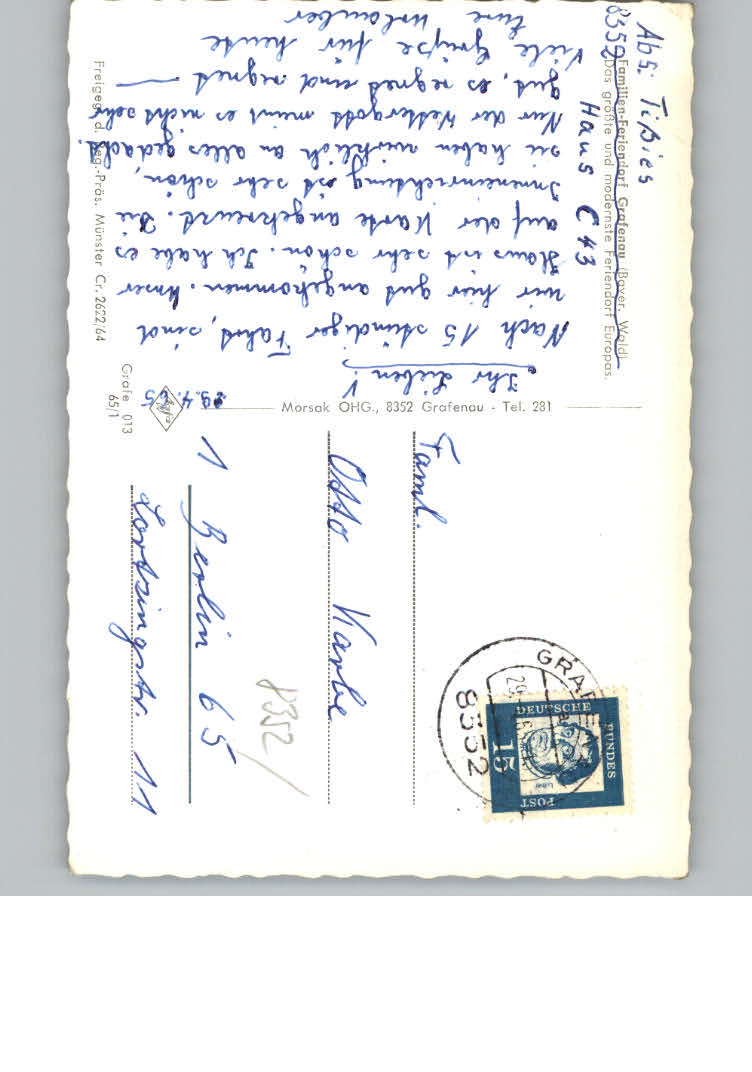 Abs: Tißies
8352
Haus C 43
Familien-Feriendorf Grafenau (Bayer. Wald)
Das größte und modernste Feriendorf Europas.
29.4.65
Ihr Lieben!
Nach 15 stündiger Fahrt, sind
wir hier gut angekommen. Unser
Haus ist sehr schön. Ich habe es
auf der Karte angekreuzt. Die
Inneneinrichtung ist sehr schön,
sie haben wirklich an alles gedacht.
Nur der Wettergott meint es nicht sehr
gut, es regnet und regnet
Viele Grüße für heute
Eure Urlauber
Freigeg. d. Reg.-Präs. Münster Cr. 2622/64
Grafe 013
65/1
Agfa
Morsak OHG., 8352 Grafenau - Tel. 281
Faml.
Otto Karbe
1 Berlin 65
Lortzingstr. 11
8352
GRAFENAU
29.
8352
DEUTSCHE
BUNDES
POST
15
Luther